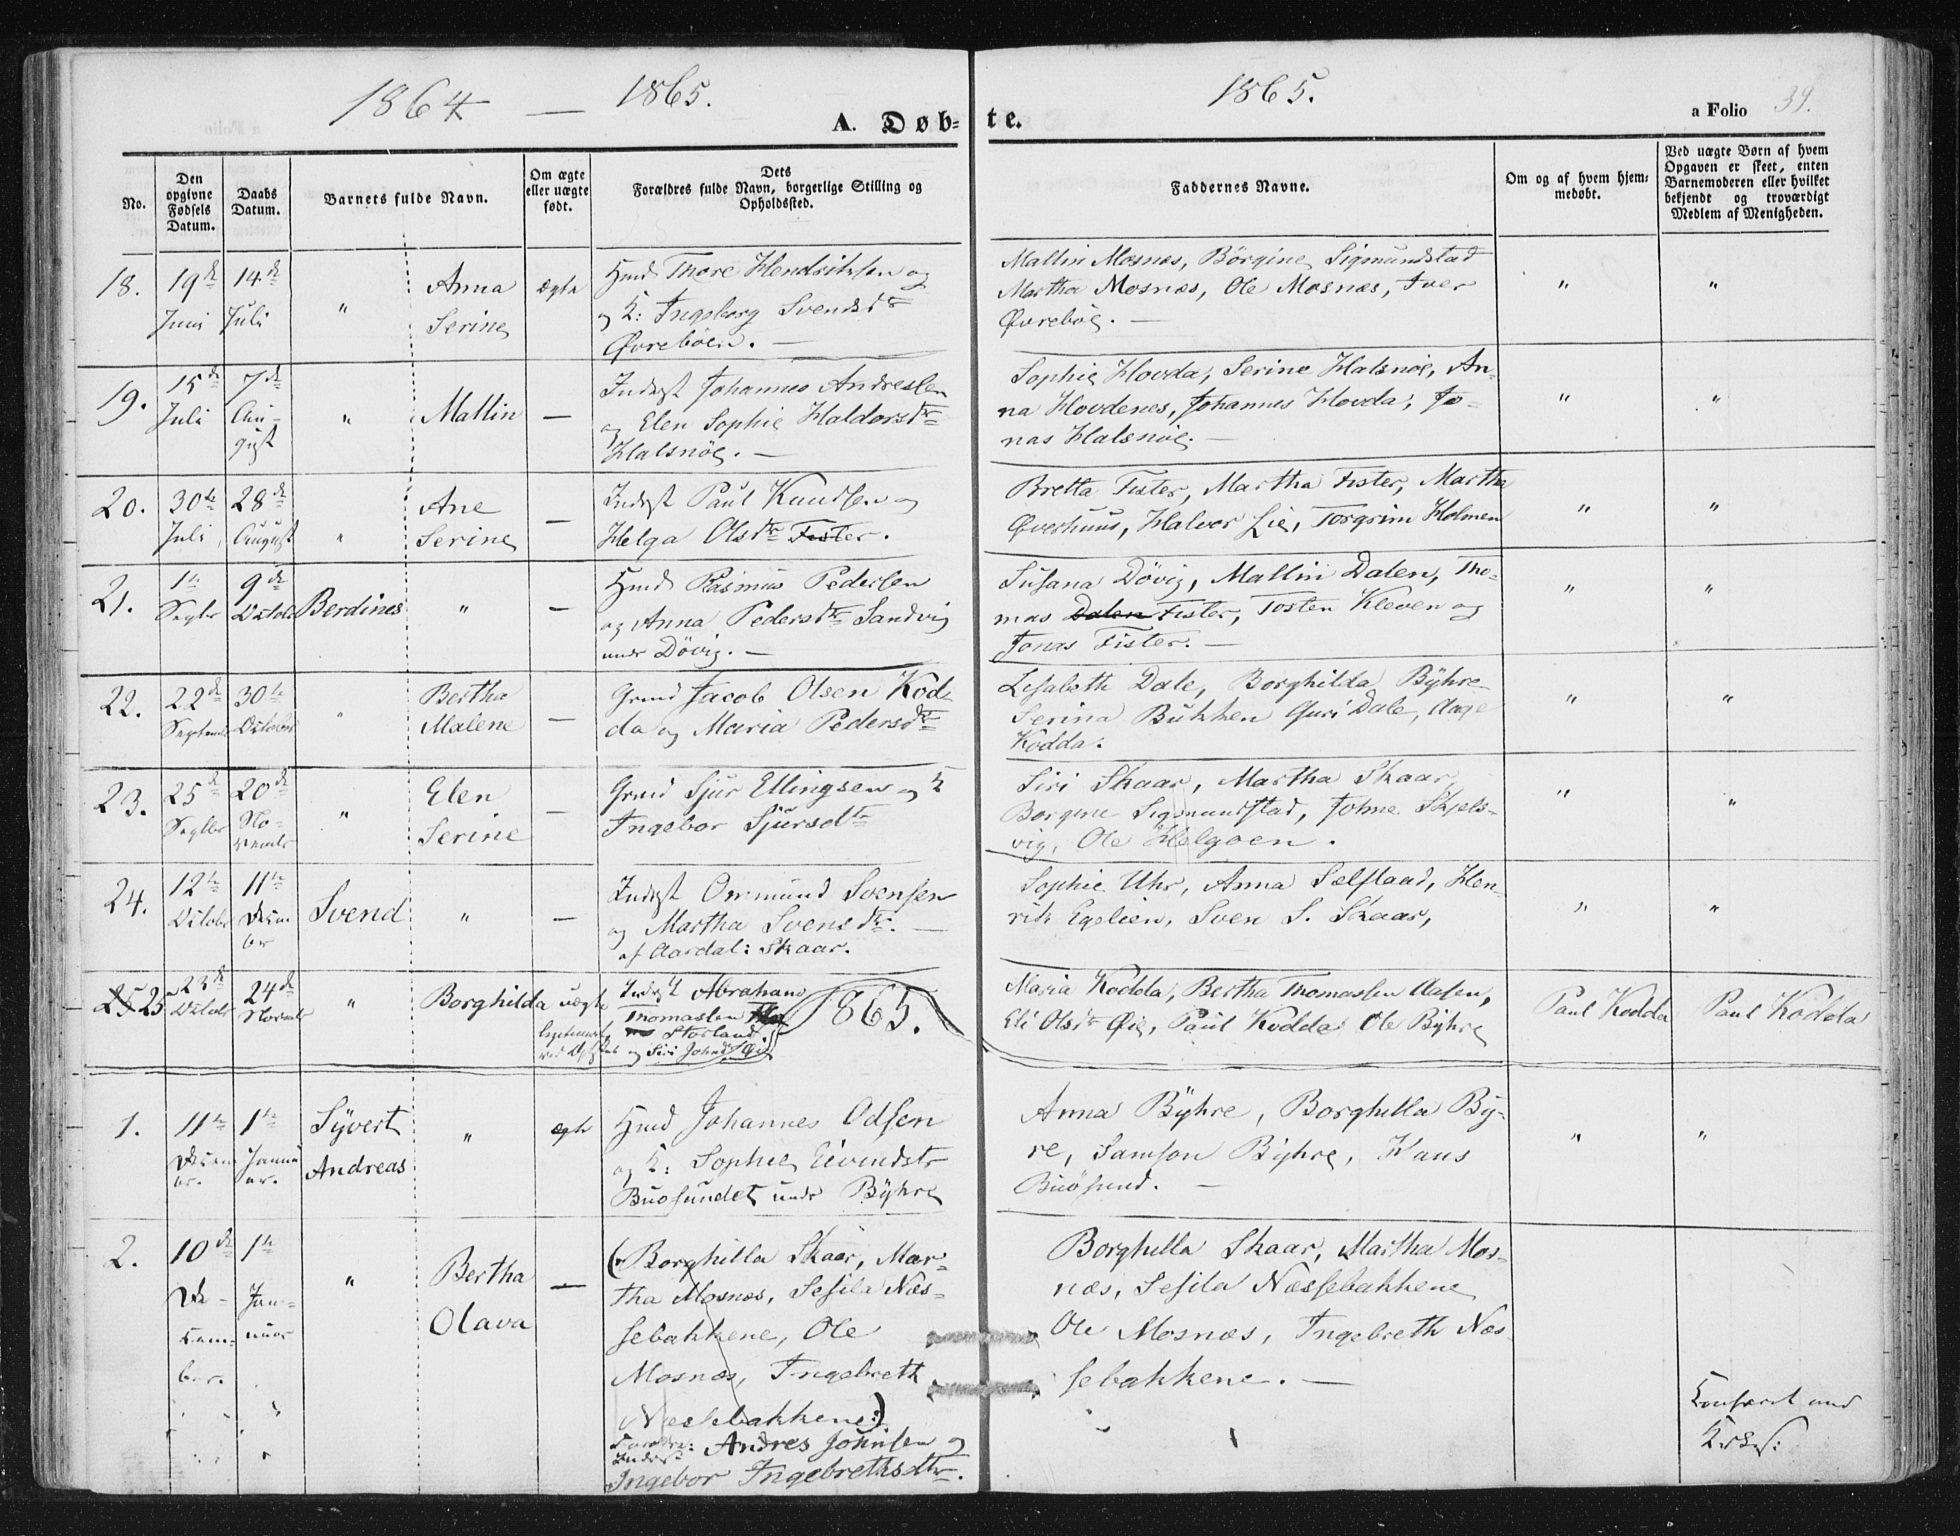 1864 — 1865.
1865.
A. Døb-
te.
a Folio 39.
No.
Den opgivne Fødsels Datum.
Daabs Datum.
Barnets fulde Navn.
Om ægte eller uægte født.
Dets Forældres fulde Navn, borgerlige Stilling og Opholdssted.
Faddernes Navne.
Om og af hvem hjem-
medøbt.
Ved uægte Børn af hvem
Opgaven er skeet, enten
Barnemoderen eller hvilket
bekjendt og troværdigt
Medlem af Menigheden.
18.
19de Juni
14de Juli
"
Anna
Serine
ægte
Huusm. Thore Hendriksen og
og K: Ingeborg Svendsdr
Øvrebøen. —
Mallin Mosnes, Børgine Sigmundstad
Martha Mosnæs, Ole Mosnæs, Iver
Øvrebøe. —
"
"
19.
15de Juli
7de Au-
gust
"
Mallin
—
Inderst Johannes Andresen
og Elen Sophie Haldorsdtr
Halsnøe. —
Sophie Hovda, Serine Halsnøe, An-
na Hovdenes, Johannes Hovda, Jo-
nas Halsnøe. —
"
"
20.
30te Juli
28de August
"
Ane
Serine
—
Inderst Paul Knudsen og
Helga Olsdtr Fister.
Bretta Fister, Martha Fister, Martha
Øverhuus, Halvor Lie, Torgrim Holmen
"
"
21.
1te Septbr
9de Octobr
Berdines
"
—
Huusm. Rasmus Pedersen
og Anna Pedersdtr Sandvig
under Døvig. —
Susana Døvig, Mallin Dalen, Tho-
mas Dalen Fister, Tosten Kleven og
Jonas Fister. —
"
"
22.
22de Septembr
30te Octobr
"
Bertha
Malene
—
Grmd Jacob Olsen Kod-
da og Maria Pedersdtr
Lisabeth Dale, Borghilda Byhre
Serina Bukken Guri Dale, Aage
Kodda.
"
"
23.
25de Septbr
20de No-
vembr
"
Elen
Serine
—
Grmd Sjur Ellingsen og K
Ingebor Sjursdtr
Siri Skaar, Martha Skaar,
Borgine Sigmundstad, Johne Skjels-
vig, Ole Helgoen.
"
"
24.
12te Octobr
11te Decem
ber
Svend
"
—
Inderst Ommund Svensen
og Martha Svensdtr. —
af Aardal: Skaar.
Sophie Uhr, Anna Selstaad, Hen-
rik Egelien, Sven S. Skaar,
"
"
25 25
23de Octobr
24de Novembr
"
Borghilda
uægte
Inderst Abraham
Thomassen
Storland
og Siri Johnsd Øie
1865.
Maria Kodda, Bertha Thomassen Aasen,
Eli Olsdtr Øie, Paul Kodda Ole Byhre
Paul Kodda
Paul Kodda
1.
11te Decem
br.
1te Janu
ar.
Syvert
Andreas
"
ægte
Huusmd Johannes Odsen
og K: Sophie Eivindsdtr
Buøsundet under Byhre
Anna Byhre, Borghilla By-
re, Samson Byhre, Hans
Buøsund. —
"
"
2.
10de De-
cem-
ber.
1te Jan-
uar
"
Bertha
Olava
—
(Borghilla Skaar, Mar-
tha Mosnæs, Sesila Næs-
sebakkene, Ole
Mosnæs, Ingebreth
Næssebakkene:)
Inderst: Andres Johnsen og
Ingebor Ingebrethsdtr.
Borghilla Skaar, Martha Mos-
næs, Sesila Næssebakkene
Ole Mosnæs, Ingebreth Næs-
sebakkene. —
Confereret med